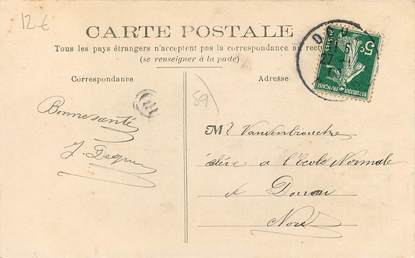 12 €
CARTE POSTALE
Tous les pays étrangers n'acceptent pas la correspondance au recto
(se renseigner à la poste)
Correspondance
Adresse
DOU
5c
59
Bonne santé
Mr Vandenbrouche
élève à l'école Normale
de Douai
Nord